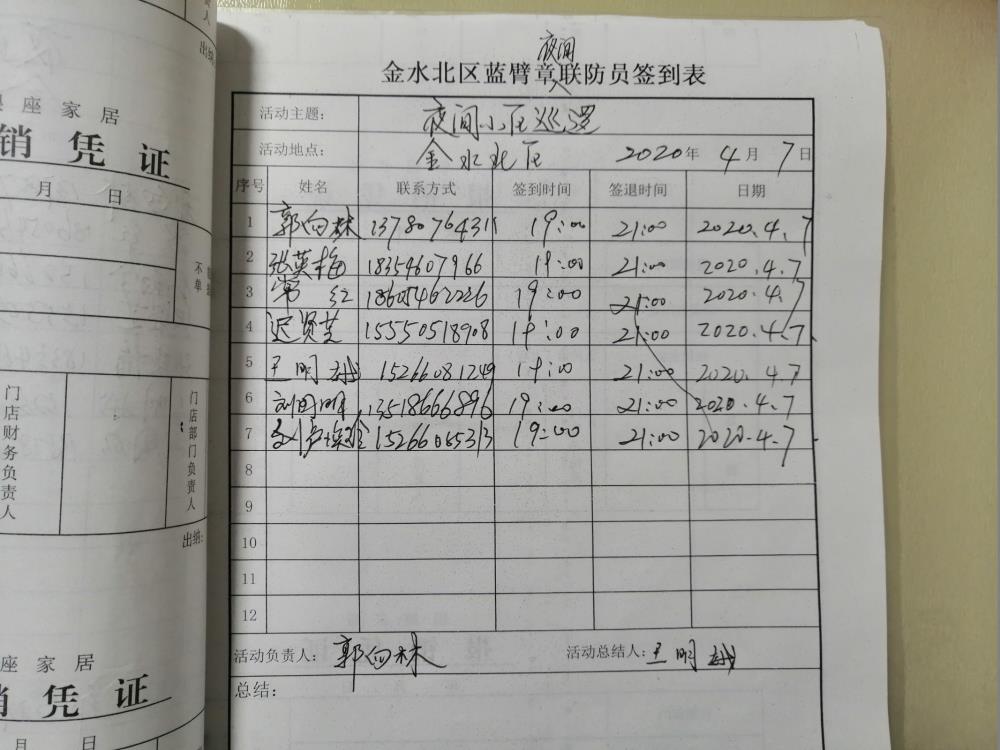 夜间
金水北区蓝臂章联防员签到表
活动主题: 夜间小区巡逻
活动地点: 金水北区 2020年 4月 7日
序号 姓名 联系方式 签到时间 签退时间 日期
1 郭向林 1378076431 19:00 21:00 2020.4.7
2 张英梅 18354607966 19:00 21:00 2020.4.7
3 常红 18605462226 19:00 21:00 2020.4.7
4 迟贤芝 15550518908 19:00 21:00 2020.4.7
5 王明 15266081249 19:00 21:00 2020.4.7
6 刘田明 13518666896 19:00 21:00 2020.4.7
7 15266055313 19:00 21:00 2020.4.7
8
9
10
11
12
活动负责人: 郭向林 活动总结人: 王明
总结:
出纳
座家居
销凭证
月 日
不单
门店财务负责人
门店部门负责人
出纳:
座家居
销凭证
月 日